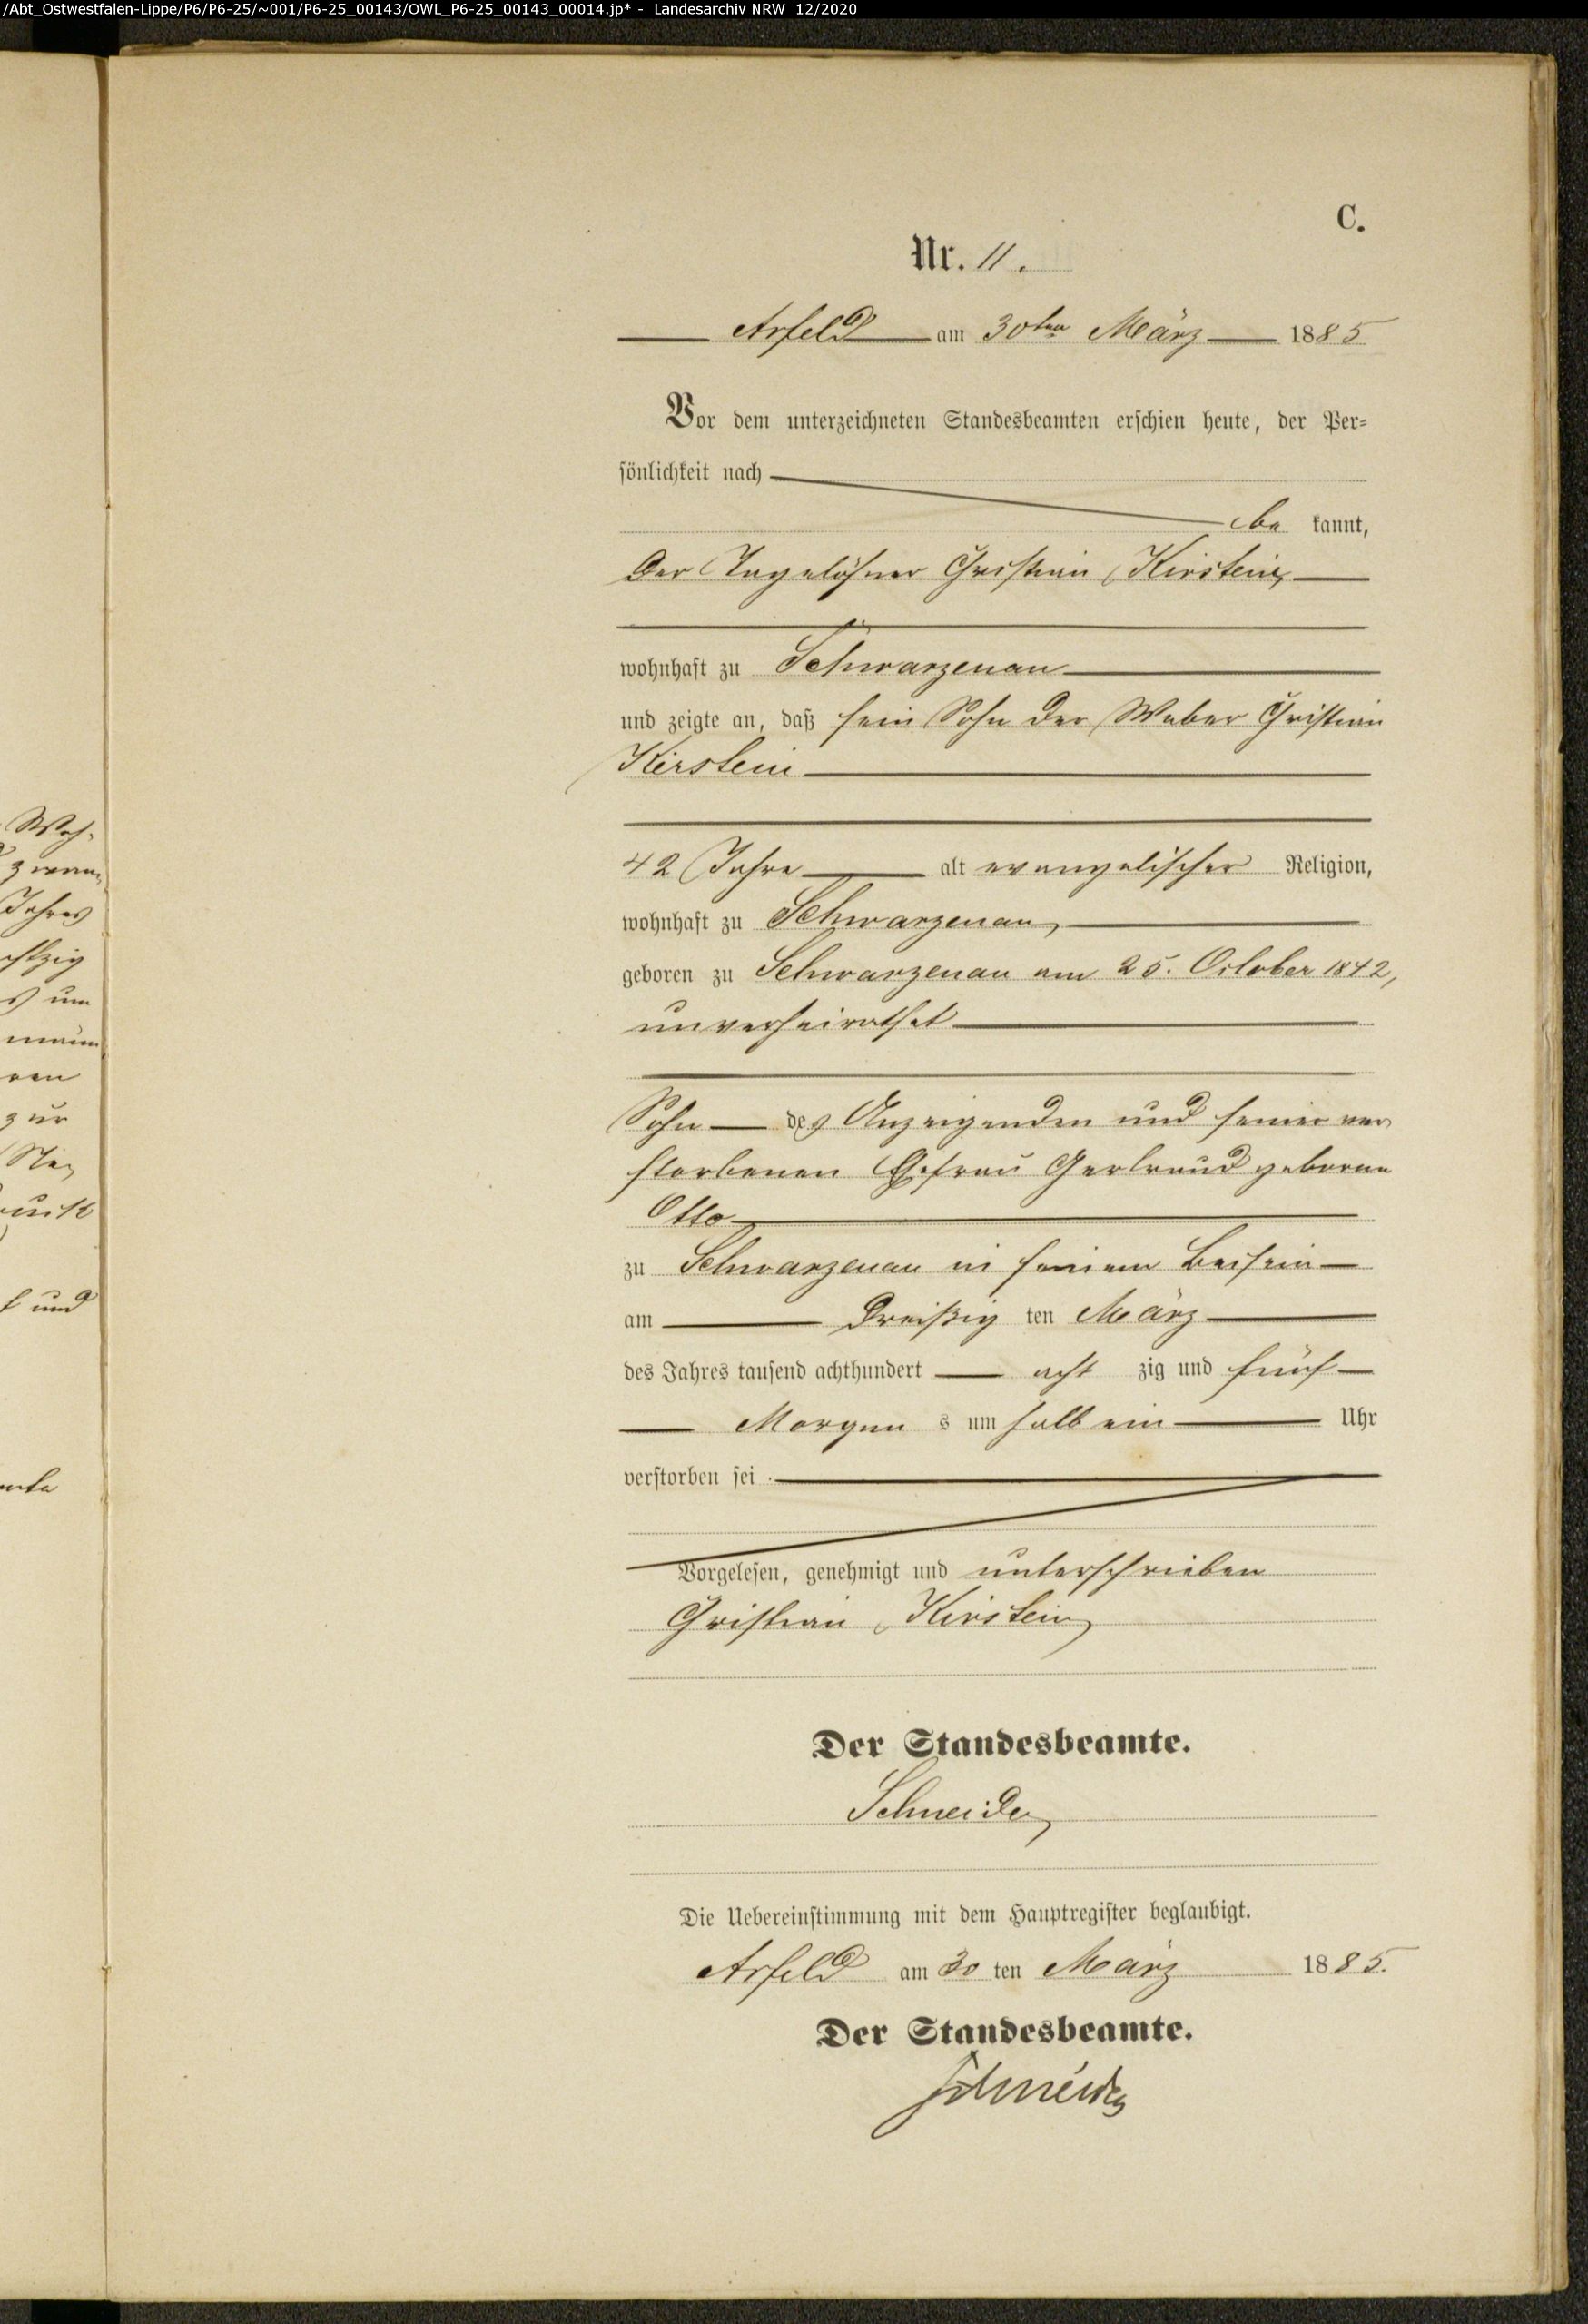 /Abt_Ostwestfalen-Lippe/P6/P6-25/~001/P6-25_00143/OWL_P6-25_00143_00014.jp* - Landesarchiv NRW 12/2020
C.
Nr. 11.
Arfeld am 30ten März 1885
Vor dem unterzeichneten Standesbeamten erschien heute, der Per-
sönlichkeit nach
be kannt,
der Tagelöhner Christian Kirstein,
wohnhaft zu Schwarzenau
und zeigte an, daß sein Sohn der Weber Christian
Kirstein
42 Jahre alt evangelischer Religion,
wohnhaft zu Schwarzenau,
geboren zu Schwarzenau am 25. October 1842,
unverheirathet
Sohn des Anzeigenden und seiner ver
storbenen Ehefrau Gertraud geborne
Otto
zu Schwarzenau in seinem Beisein
am dreißig ten März
des Jahres tausend achthundert acht zig und fünf
Morgen s um halb ein Uhr
verstorben sei.
Vorgelesen, genehmigt und unterschrieben
Christian Kirstein
Der Standesbeamte.
Schneider
Die Uebereinstimmung mit dem Hauptregister beglaubigt.
Arfeld am 30 ten März 1885.
Der Standesbeamte.
Schneider
Woh-
Jahres
um
zur
und